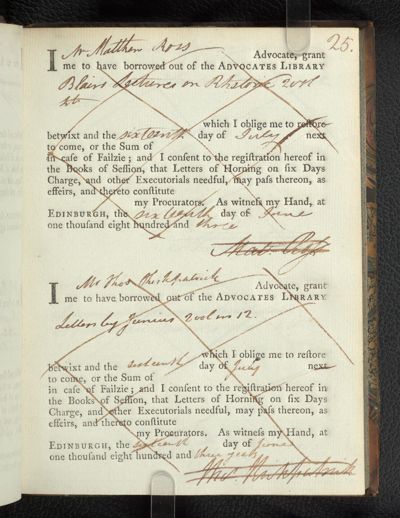 25.
I Mr Matthew Ross Advocate, grant
me to have borrowed out of the ADVOCATES LIBRARY
Blairs Lectures on Rhetoric 2 vol
which I oblige me to restore
betwixt and the sixteenth day of July next
to come, or the Sum of
in case of Failzie; and I consent to the registration hereof in
the Books of Session, that Letters of Horning on six Days
Charge, and other Executorials needful, may pass thereon, as
effeirs, and thereto constitute
my Procurators. As witness my Hand, at
EDINBURGH, the sixteenth day of June
one thousand eight hundred and three
Mat. Ross
I Mr Thos Kirkpatrick Advocate, grant
me to have borrowed out of the ADVOCATES LIBRARY
Letters by Junius 2 vol in 12.
which I oblige me to restore
betwixt and the sixteenth day of July next
to come, or the Sum of
in case of Failzie; and I consent to the registration hereof in
the Books of Session, that Letters of Horning on six Days
Charge, and other Executorials needful, may pass thereon, as
effeirs, and thereto constitute
my Procurators. As witness my Hand, at
EDINBURGH, the sixteenth day of June
one thousand eight hundred and three years
Thos. Kirkpatrick